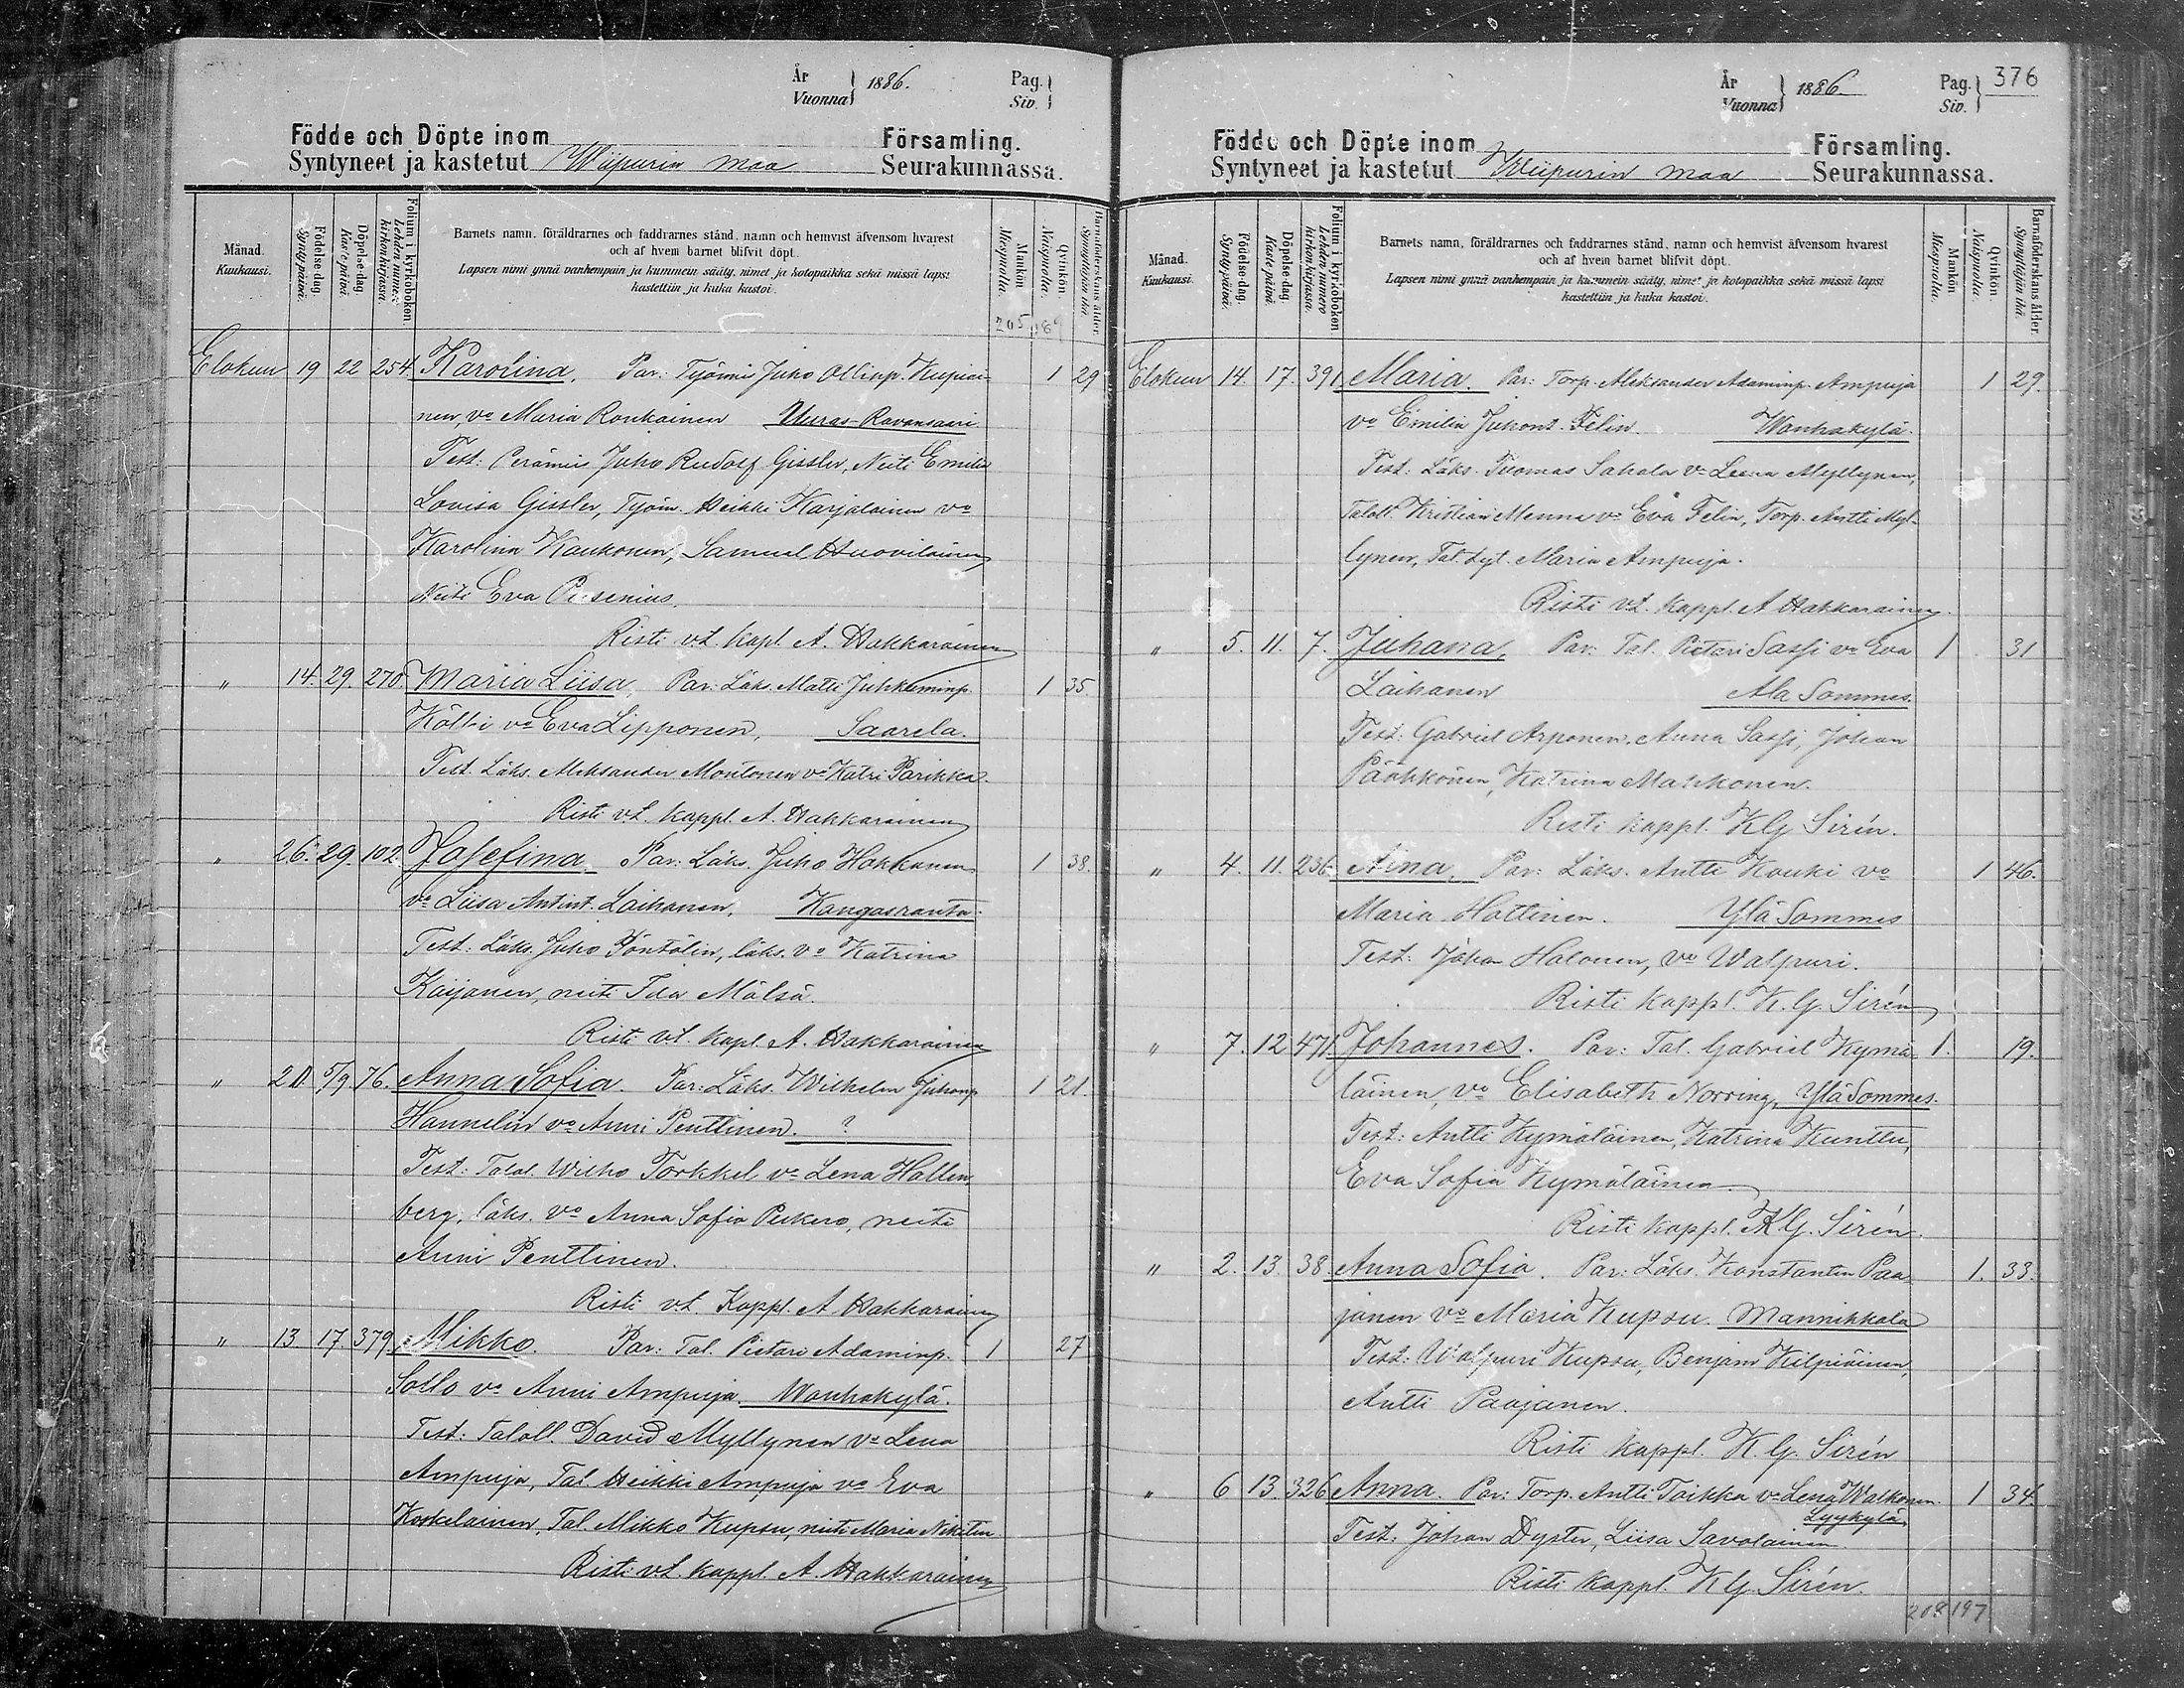 År
Vuonna
1886.
Pag.
Siv.
Födde och Döpte inom
Församling.
Syntyneet ja kastetut Wiipurin maa Seurakunnassa.
Månad.
Kuukausi.
Födelse-dag.
Synty-päivä.
Döpelse-dag.
Kaste-päivä.
Folium i kyrkoboken.
Lehden numero kirkonkirjassa.
Barnets namn, föräldrarnes och faddrarnes stånd, namn och hemvist äfvensom hvarest
och af hvem barnet blifvit döpt.
Lapsen nimi ynnä vanhempain ja kummein sääty, nimet ja kotopaikka sekä missä lapsi
kastettiin ja kuka kastoi.
Mankön.
Miespuolia.
Qvinkön.
Naispuolia.
Barnaföderskans ålder.
Synnyttäjän ikä.
205
Elokuu 19 22 254. Karolina. Par: Työmies Juho Ollinp. Kupiai- 1 29
nen, vo Maria Ronkainen Uuras-Ravansaari
Test: Perämies Juho Rudolf Gissler, Neiti Emilia
Lovisa Gissler, Työm. Heikki Karjalainen vo
Karolina Kaukonen, Samuel Huovilainen
Neiti Eva
Risti v.t. kapl. A. Hakkarainen
" 14. 29. 270. Maria Liisa, Par: Läks. Matti Juhkiminp. 1 35
Költi vo Eva Lipponen, Saarela.
Test. Läks. Aleksander Montonen vo Katri Parikka
Risti v.t. kappl. A. Hakkarainen
" 26. 29. 102. Josefina. Par: Läks. Juho Hakkanen 1 38.
vo Liisa Antint. Laihanen, Kangasranta.
Test: Läks. Juho Pöntölin, läks. vo Katrina
Kaijanen, neiti Ida Mälsä.
Risti v.t. kapl. A. Hakkarainen
" 20. 5/9 76. Anna Sofia. Par: Läks. Wilhelm Juhonp 1 21.
Hannelin vo Anni Penttinen. ?
Test: Talol. Wilho Torkkel vo Lena Hallen
berg, läks. vo Anna Sofia Peskero, neiti
Anni Penttinen.
Risti v.t. Kappl. A Hakkarainen
" 13. 17. 379. Mikko. Par: Tal. Pietari Adaminp. 1 27
Sollo vo Anni Ampuja. Wanhakylä.
Test: Taloll. David Myllynen vo Lena
Ampuja, Tal. Heikki Ampuja vo Eva
Koskelainen, Tal. Mikko Kupsu, neiti Maria Nikitin
Risti v.t. kappl. A. Hakkarainen
År
Vuonna
1886.
Pag.
Siv.
376
Födde och Döpte inom
Församling.
Syntyneet ja kastetut Wiipurin maa Seurakunnassa.
Månad.
Kuukausi.
Födelse-dag.
Synty-päivä.
Döpelse-dag.
Kaste-päivä.
Folium i kyrkoboken.
Lehden numero kirkonkirjassa.
Barnets namn, föräldrarnes och faddrarnes stånd, namn och hemvist äfvensom hvarest
och af hvem barnet blifvit döpt.
Lapsen nimi ynnä vanhempain ja kummein sääty, nimet ja kotopaikka sekä missä lapsi
kastettiin ja kuka kastoi.
Mankön.
Miespuolia.
Qvinkön.
Naispuolia.
Barnaföderskans ålder.
Synnyttäjän ikä.
Elokuu 14. 17. 391 Maria. Par: Torp. Aleksander Adaminp. Ampuja 1 29.
vo Emilia Juhont. Felin. Wanhakylä.
Test: Läks. Tuomas Sahala vo Leena Myllynen,
Taloll. Kristian Menna vo Eva Felin, Torp. Antti Myl-
lynen, Tal. tyt. Maria Ampuja.
Risti v.t. Kappl. A Hakkarainen.
" 5. 11. 7. Juhana, Par: Tal. Pietari Sassi vo Eva 1 31
Laihanen Ala Sommes.
Test: Gabriel Arponen, Anna Sassi, Johan
Pääkkönen, Katrina Mahkonen.
Risti kappl. K G Sirén.
" 4. 11. 236. Aina. Par: Läks. Antti Kouki vo 1 46.
Maria Hattinen. Ylä Sommes
Test: Johan Halonen, vo Walpuri.
Risti kappl. K. G. Sirén
" 7. 12 471 Johannes. Par: Tal. Gabriel Kymä 1. 19.
läinen, vo Elisabeth Norring, Ylä Sommes.
Test: Antti Kymäläinen, Katrina Kunttu,
Eva Sofia Kymäläinen
Risti kappl. K G. Sirén.
" 2. 13. 38. Anna Sofia. Par: Läks. Konstantin Paa 1. 33.
janen vo Maria Kupsu. Mannikkala
Test: Walpuri Kupsu, Benjam Kilpiäinen,
Antti Paajanen.
Risti kappl. K. G. Sirén
" 6 13. 326 Anna. Par: Torp. Antti Toikka vo Lena Walkonen. 1 34.
Lyykylä,
Test: Johan Dyster, Liisa Savolainen
Risti kappl. K G. Sirén.
208 197